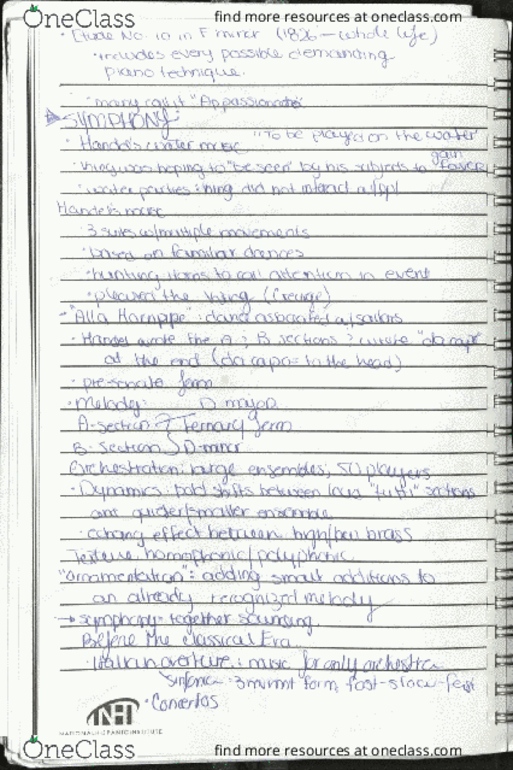 OneClass find more resources at oneclass.com
• Etude No. 10 in F minor (1826 - whole life)
• includes every possible demanding
piano technique.
• many call it "Appassionato"
SYMPHONY:
• Handel's water music "To be played on the water"
• King was hoping to "be seen" by his subjects to gain favor
• water parties: king did not interact w/ppl
Handel's music
• 3 suites w/multiple movements
• based on familiar dances
• hunting horns to call attention in event
• pleased the king (George)
"Alla Hornpipe": dance associated w/sailors
• Handel wrote the A ; B sections ; wrote "da capo"
at the end (da capo = to the head)
• pre-sonata form
• Melody: D major
A-section Ternary form
B-section D-minor
Orchestration: large ensembles; 50 players
• Dynamics: bold shifts between loud "tutti" sections
and quieter/smaller ensemble
• echoing effect between high/low brass
Texture: homophonic/polyphonic
"ornamentation": adding small additions to
an already recognized melody
→ symphony = together sounding
Before the Classical Era
• Italian overture: music for only orchestra
Sinfonia: 3 mvmnt form fast-slow-fast
• Concertos
OneClass find more resources at oneclass.com